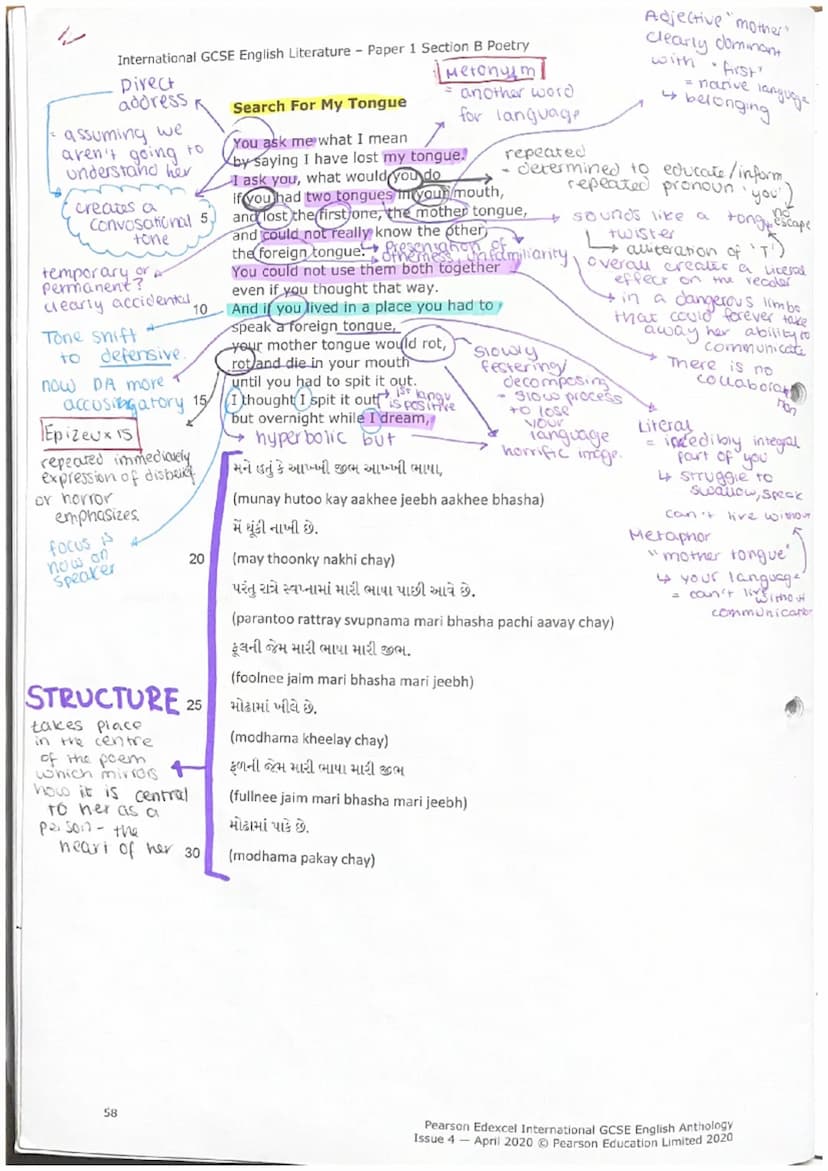 International GCSE English Literature – Paper 1 Section B Poetry
Search For My Tongue
You ask me what I mean
by saying I have lost my tongue.
I ask you, what would you do
if you had two tongues in your mouth,
5
and lost the first one, the mother tongue,
and could not really know the other,
the foreign tongue.
You could not use them both together
even if you thought that way.
10
And if you lived in a place you had to
speak a foreign tongue,
your mother tongue would rot,
rot and die in your mouth
until you had to spit it out.
15
I thought I spit it out
but overnight while I dream,
મને હતું કે આખ્ખી જીભ આખ્ખી ભાષા,
(munay hutoo kay aakhee jeebh aakhee bhasha)
મેં થૂંકી નાખી છે.
20
(may thoonky nakhi chay)
પરંતુ રાત્રે સ્વપ્નામાં મારી ભાષા પાછી આવે છે.
(parantoo rattray svupnama mari bhasha pachi aavay chay)
ફૂલની જેમ મારી ભાષા મારી જીભ.
(foolnee jaim mari bhasha mari jeebh)
25
મોઢામાં ખીલે છે.
(modhama kheelay chay)
ફળની જેમ મારી ભાષા મારી જીભ
(fullnee jaim mari bhasha mari jeebh)
મોઢામાં પાકે છે.
30
(modhama pakay chay)
Direct
address
= assuming we
aren't going to
understand her
creates a
convosational
tone
temporary or
permanent?
clearly accidental
Tone shift
to defensive.
now DA more
accusingatory
Epizeuxis
repeated immediately
expression of disbelief
or horror
emphasizes.
focus is
now on
speaker
STRUCTURE
takes place
in the centre
of the poem
which mirrors
how it is central
to her as a
person - the
heart of her
Metonym
= another word
for language
Adjective "mother"
clearly dominant
with "first"
= native language
↳ belonging
repeated
- determined to educate/inform
repeated pronoun 'you'
no
escape
sounds like a tongue
twister
↳ alliteration of 'T'
overall creates a literal
effect on the reader
→ in a dangerous limbo
that could forever take
away her ability to
communicate
Presentation of
otherness, unfamiliarity
There is no
collaboration
slowly
festering/
decomposing
= slow process
to lose
your
language
horrific image.
1st langu
is positive
hyperbolic but
Literal
= incredibly integral
part of you
↳ struggle to
swallow, speak
can't live without
Metaphor
"mother tongue"
↳ your language
= can't live without
communication
58
Pearson Edexcel International GCSE English Anthology
Issue 4 — April 2020 © Pearson Education Limited 2020